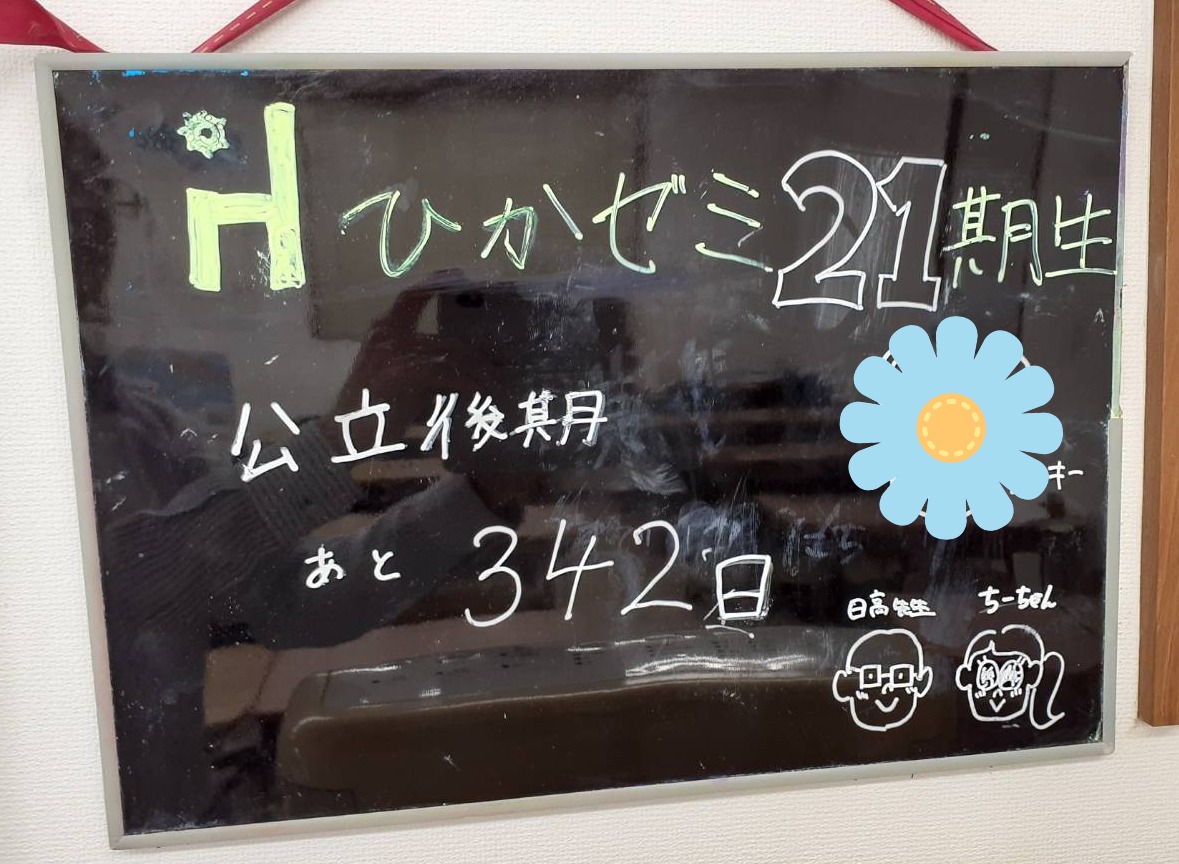 H ひかゼミ21期生
公立後期
あと 342日
キー
日高先生 ちーちゃん